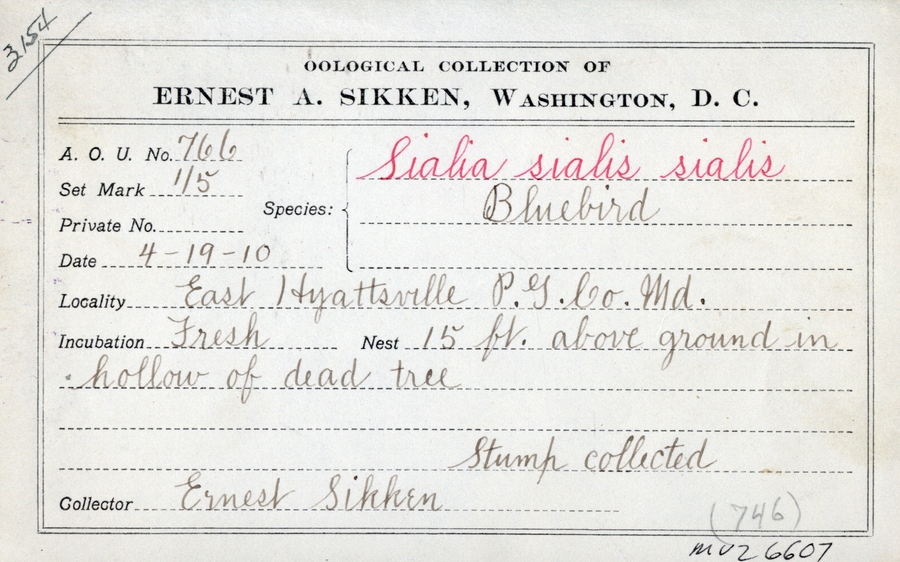 3154
OOLOGICAL COLLECTION OF
ERNEST A. SIKKEN, WASHINGTON, D. C.
A. O. U. No. 766
Set Mark 1/5
Private No.
Date 4-19-10
Species: Sialia sialis sialis
Bluebird
Locality East Hyattsville P.G. Co. Md.
Incubation Fresh Nest 15 ft. above ground in
hollow of dead tree
Stump collected
Collector Ernest Sikken
(746)
MVZ 6607